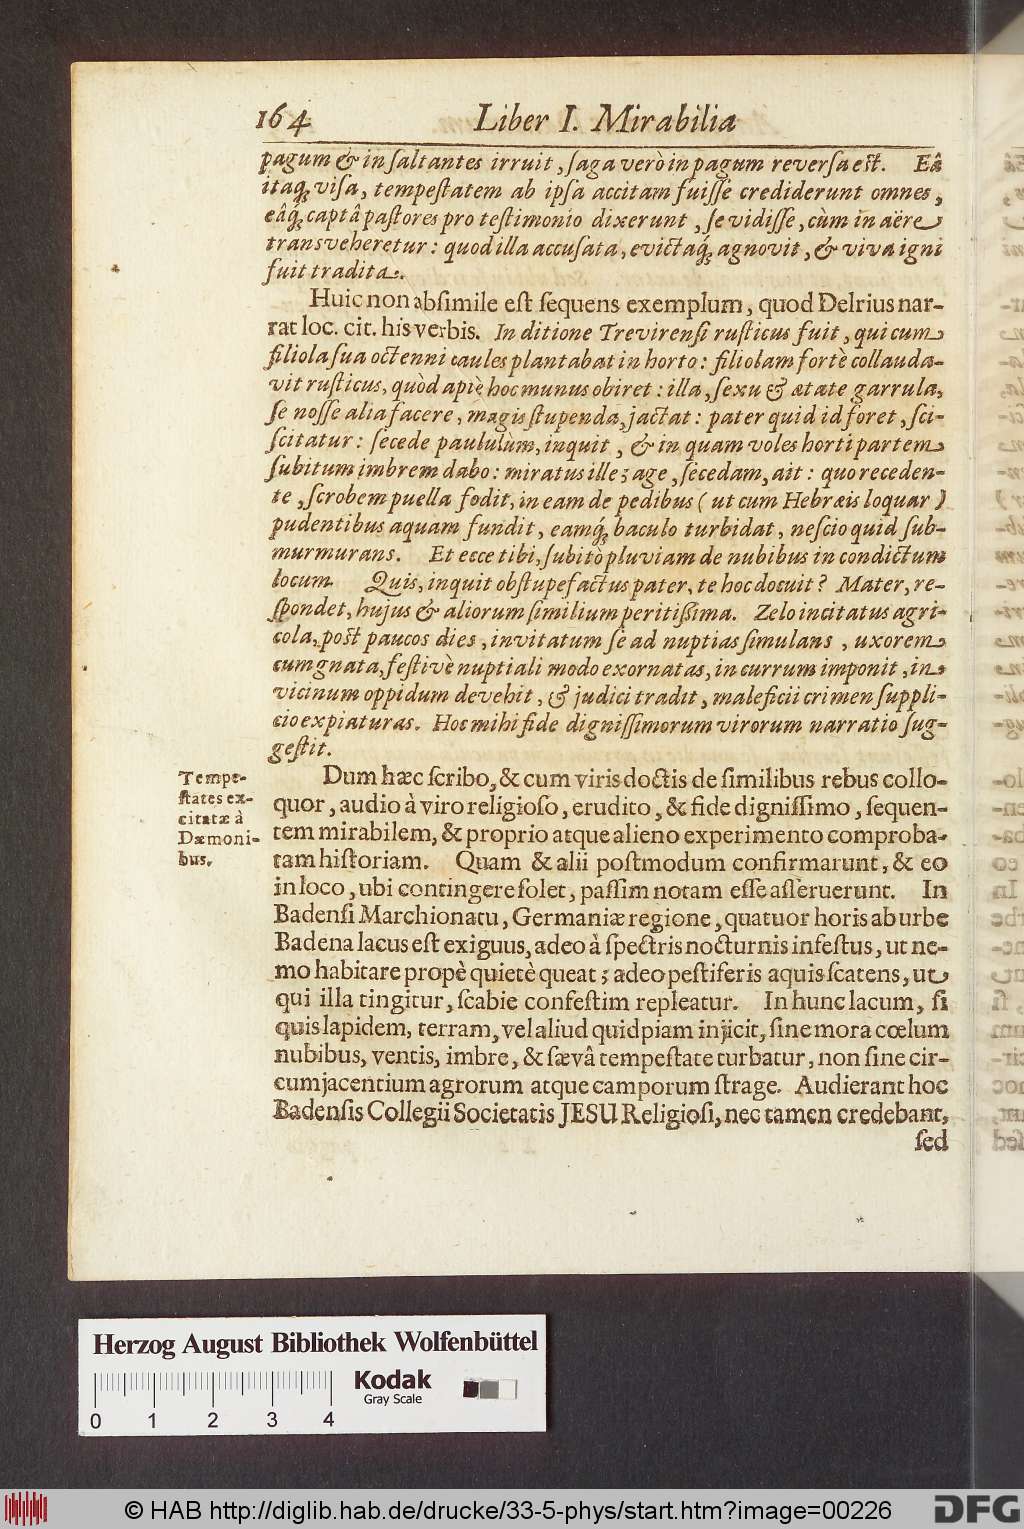 164 Liber I. Mirabilia
pagum & in ſaltantes irruit, ſaga verò in pagum reverſa eſt. Eâ
itaq́; viſa, tempeſtatem ab ipſa accitam fuiſſe crediderunt omnes,
eâq́; captâ paſtores pro teſtimonio dixerunt, ſe vidiſſe, cùm in aëre
transveheretur: quod illa accuſata, evictaq́; agnovit, & viva igni
fuit tradita.
Huic non abſimile eſt ſequens exemplum, quod Delrius nar-
rat loc. cit. his verbis. In ditione Trevirenſi ruſticus fuit, qui cum
filiola ſua octenni caules plantabat in horto: filiolam fortè collauda-
vit ruſticus, quòd apiè hoc munus obiret: illa, ſexu & ætate garrula,
ſe noſſe alia facere, magis ſtupenda, jactat: pater quid id foret, ſci-
ſcitatur: ſecede paululùm, inquit, & in quam voles horti partem
ſubitum imbrem dabo: miratus ille; age, ſecedam, ait: quo receden-
te, ſcrobem puella fodit, in eam de pedibus (ut cum Hebræis loquar)
pudentibus aquam fundit, eamq́; baculo turbidat, neſcio quid ſub-
murmurans. Et ecce tibi, ſubitò pluviam de nubibus in condictum
locum. Quis, inquit obſtupefactus pater, te hoc docuit? Mater, re-
ſpondet, hujus & aliorum ſimilium peritiſſima. Zelo incitatus agri-
cola, poſt paucos dies, invitatum ſe ad nuptias ſimulans, uxorem
cum gnata, feſtivè nuptiali modo exornatas, in currum imponit, in
vicinum oppidum devehit, & judici tradit, maleficii crimen ſuppli-
cio expiaturas. Hoc mihi fide digniſſimorum virorum narratio ſug-
geſtit.
Tempe-
ſtates ex-
citatæ à
Dæmoni-
bus.
Dum hæc ſcribo, & cum viris doctis de ſimilibus rebus collo-
quor, audio à viro religioſo, erudito, & fide digniſſimo, ſequen-
tem mirabilem, & proprio atque alieno experimento comproba-
tam hiſtoriam. Quam & alii poſtmodum confirmarunt, & eo
in loco, ubi contingere ſolet, paſſim notam eſſe aſſeruerunt. In
Badenſi Marchionatu, Germaniæ regione, quatuor horis ab urbe
Badena lacus eſt exiguus, adeo à ſpectris nocturnis infeſtus, ut ne-
mo habitare propè quietè queat; adeo peſtiferis aquis ſcatens, ut
qui illa tingitur, ſcabie confeſtim repleatur. In hunc lacum, ſi
quis lapidem, terram, vel aliud quidpiam injicit, ſine mora cœlum
nubibus, ventis, imbre, & ſævâ tempeſtate turbatur, non ſine cir-
cumjacentium agrorum atque camporum ſtrage. Audierant hoc
Badenſis Collegii Societatis JESU Religioſi, nec tamen credebant,
ſed
Herzog August Bibliothek Wolfenbüttel
Kodak
Gray Scale
0 1 2 3 4
© HAB http://diglib.hab.de/drucke/33-5-phys/start.htm?image=00226
DFG